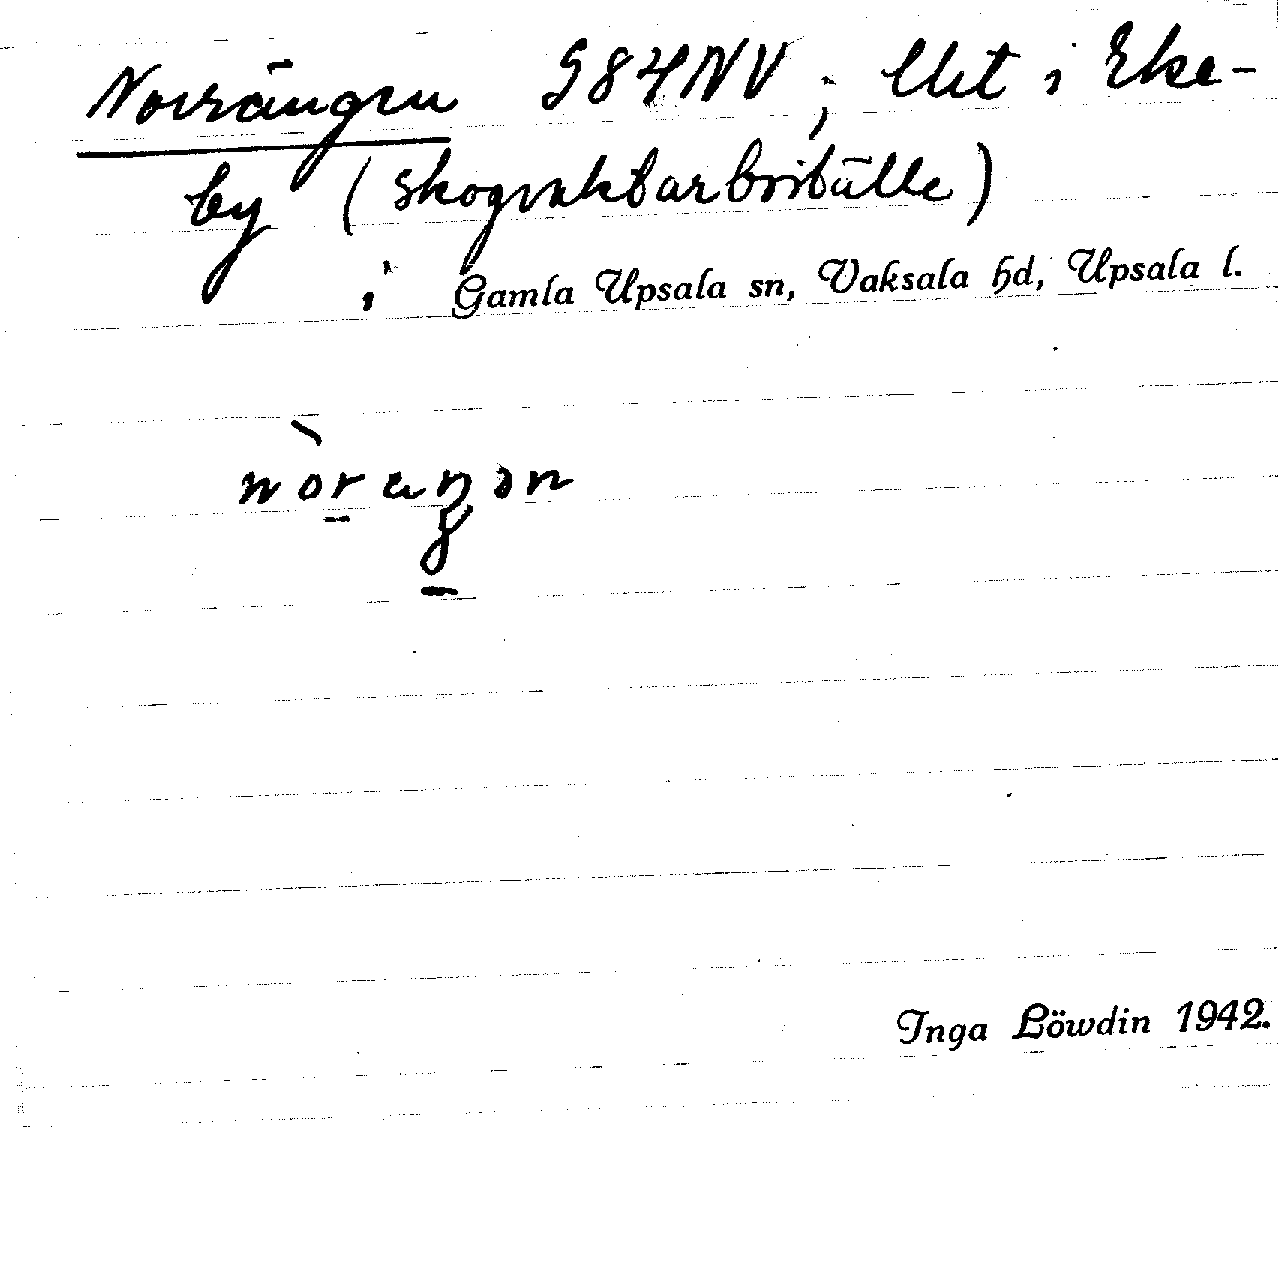 Norrängen G84NV; lht i Eke-
by (skogvaktarboställe)
i Gamla Upsala sn, Vaksala hd, Upsala l.
nòraŋən
Inga Löwdin 1942.